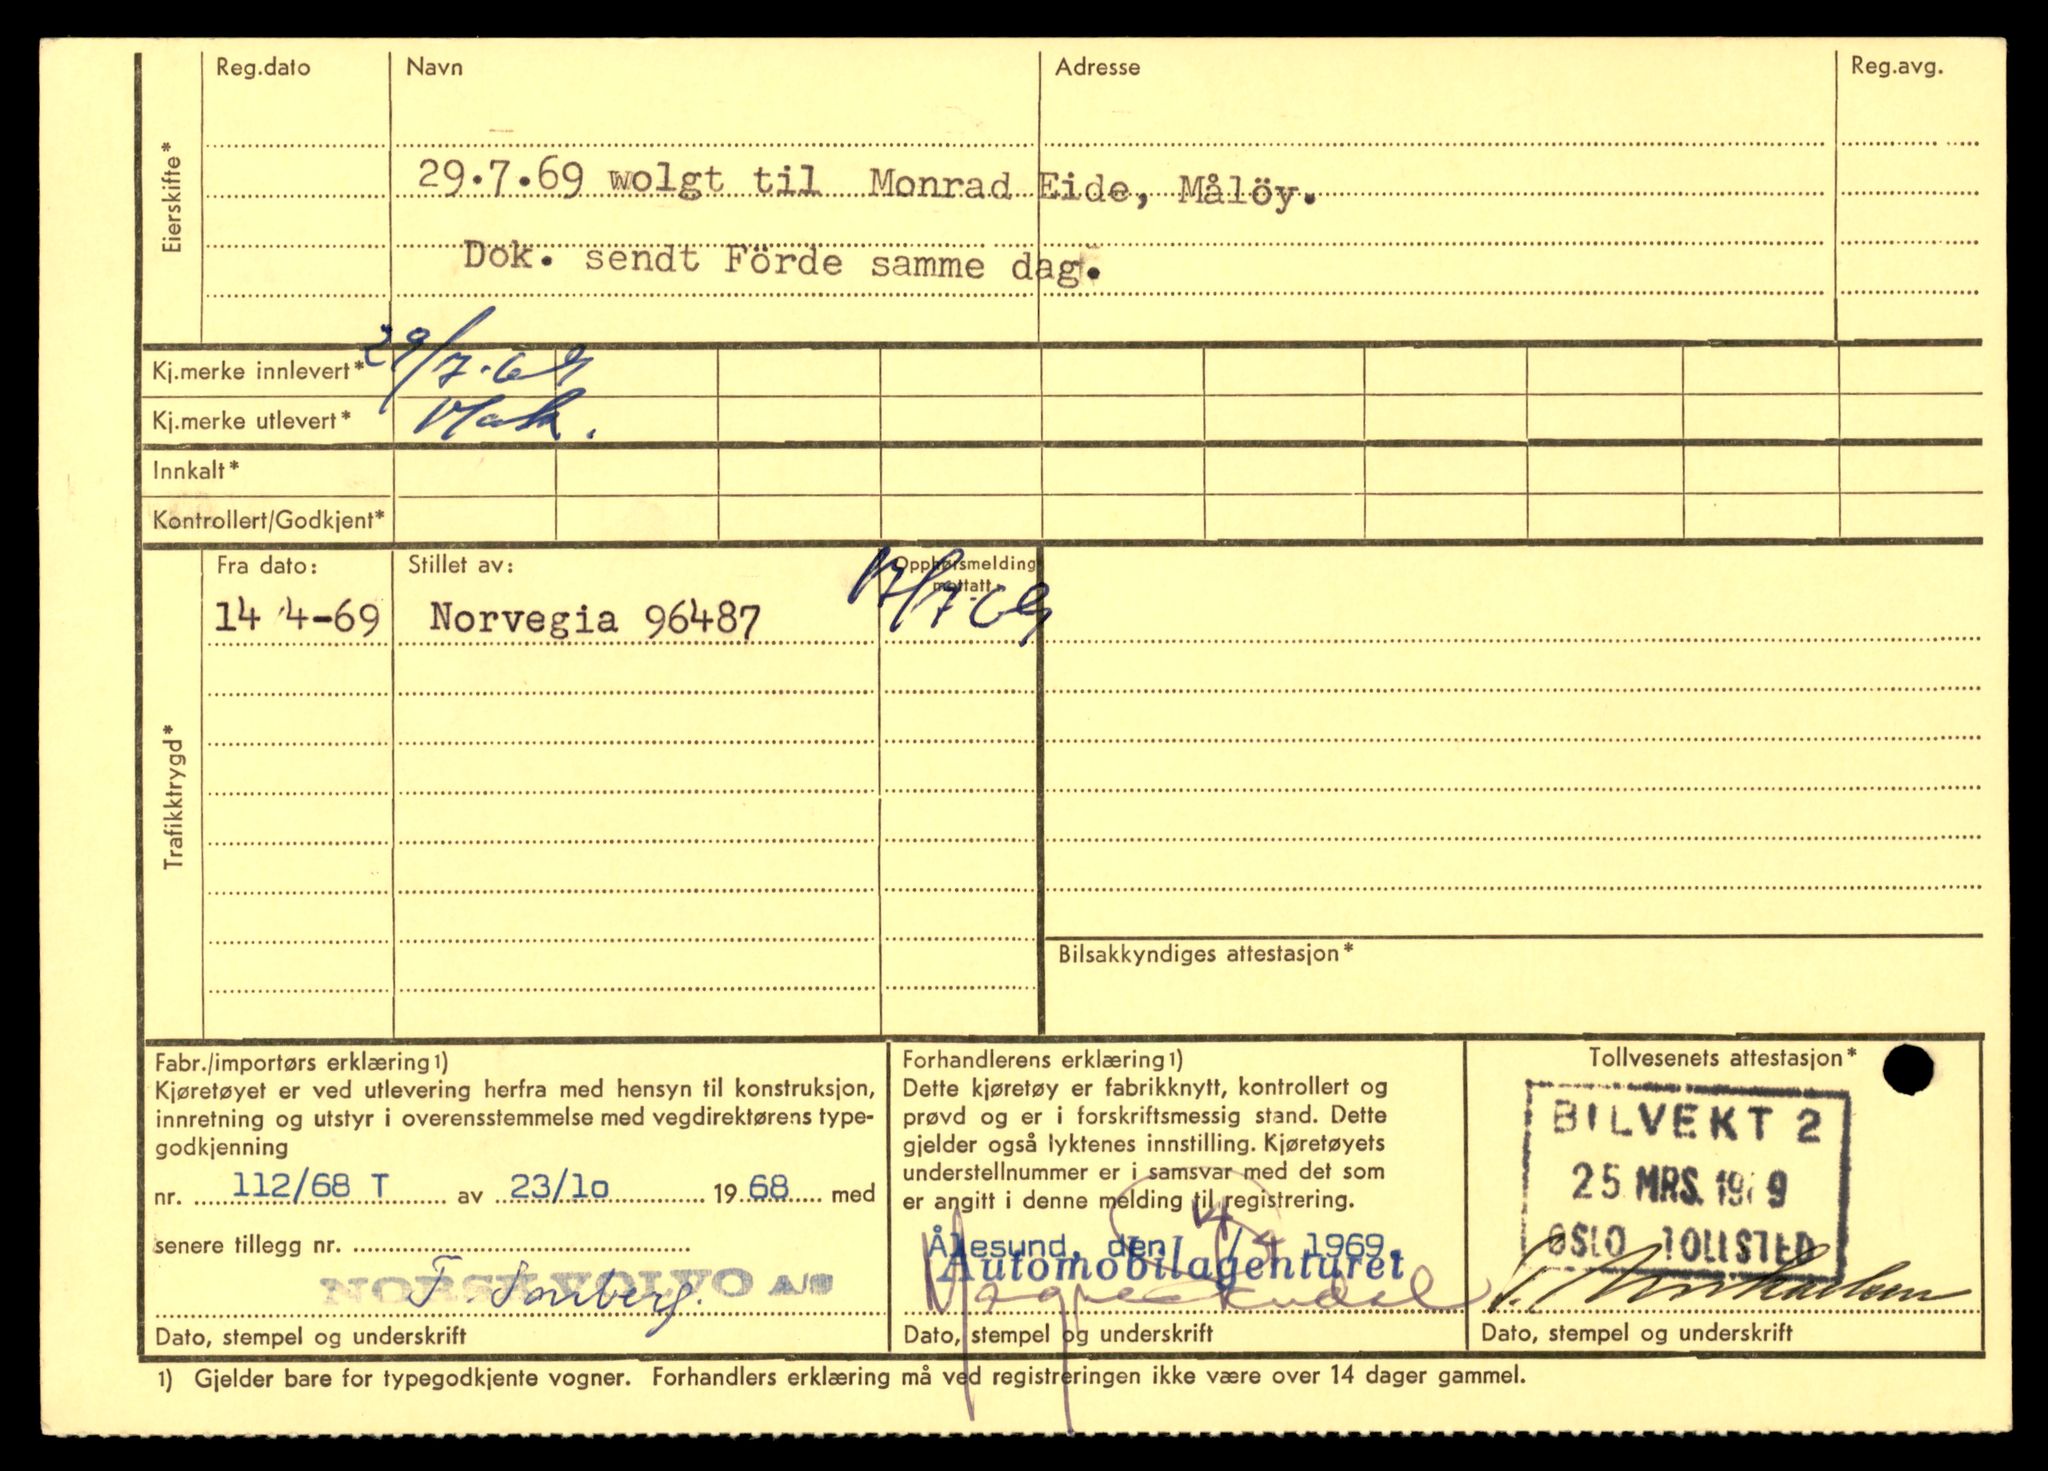 Reg.dato Navn Adresse Reg.avg.
Eierskifte*
29.7.69 wolgt til Monrad Eide, Målöy.
Dok. sendt Förde samme dag.
Kj.merke innlevert* 29/7-69
Kj.merke utlevert*
Innkalt*
Kontrollert/Godkjent*
Trafikktrygd*
Fra dato: Stillet av: Opphørsmelding
mottatt
14 4-69 Norvegia 96487 17/7 69
Bilsakkyndiges attestasjon*
Fabr./importørs erklæring1)
Kjøretøyet er ved utlevering herfra med hensyn til konstruksjon,
innretning og utstyr i overensstemmelse med vegdirektørens type-
godkjenning
nr. 112/68 T av 23/10 1968 med
senere tillegg nr.
NORSK VOLVO A/S
Dato, stempel og underskrift
Forhandlerens erklæring1)
Dette kjøretøy er fabrikknytt, kontrollert og
prøvd og er i forskriftsmessig stand. Dette
gjelder også lyktenes innstilling. Kjøretøyets
understellnummer er i samsvar med det som
er angitt i denne melding til registrering.
Ålesund, den / 1969.
Automobilagenturet
Dato, stempel og underskrift
Tollvesenets attestasjon*
BILVEKT 2
25 MRS. 1969
OSLO TOLLSTED
Dato, stempel og underskrift
1) Gjelder bare for typegodkjente vogner. Forhandlers erklæring må ved registreringen ikke være over 14 dager gammel.